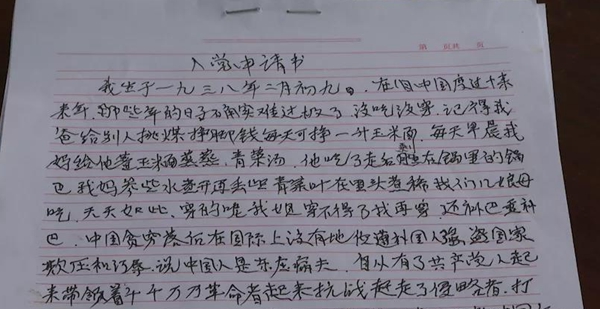 第 页共 页
入党申请书
我生于一九三八年二月初九。在旧中国度过十来
来年,那些年的日子确实难过极了,没吃没穿,记得我
爸给别人挑煤挣脚钱每天可挣一升玉米面,每天早晨我
妈给他煮玉米面蒸蒸,青菜汤,他吃了走后 在锅里的锅
巴我妈参些水煮开再丢些青菜叶在里头煮稀我们几娘母
吃,天天如此,穿的呢我姐穿不得了我再穿,还补巴重补
巴,中国贫穷落后在国际上没有地位遭外国人强盗国家
欺压和污辱,说中国人是东亚病夫,自从有了共产党人起
来带领着千千万万革命者起来抗战赶走了侵略者,打